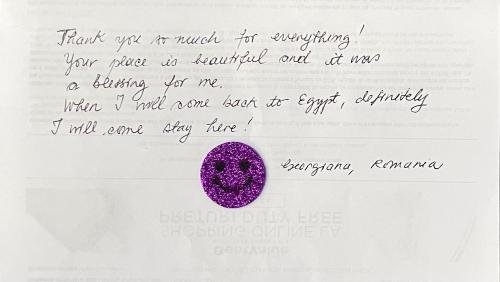 Thank you so much for everything!
Your place is beautiful and it was
a blessing for me.
When I will come back to Egypt, definetely
I will come stay here!
Georgiana, Romania
PRETURI DUTY FREE
SHOPPING ONLINE LA